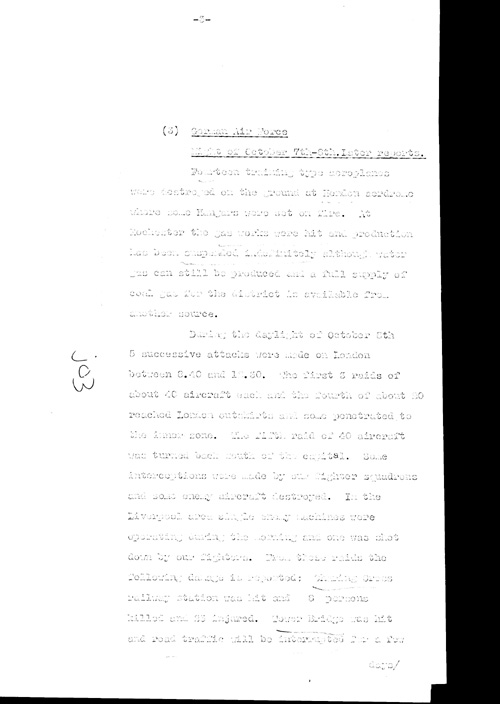 (3) German Air Force
Night of October 7th-8th. Later reports.
Fourteen training type aeroplanes
were destroyed on the ground at Hendon aerdrome
where some Hangars were set on fire. At
Rochester the gas works were hit and production
has been suspended indefinitely although water
gas can still be produced and a full supply of
coal gas for the district is available from
another source.
During the daylight of October 8th
5 successive attacks were made on London
between 8.40 and The first 3 raids of
about 40 aircraft each and the fourth of about
reached London outskirts and some penetrated to
the inner zone. The fifth raid of 40 aircraft
was turned back south of the capital. Some
interceptions were made by our fighter squadrons
and some enemy aircraft destroyed. In the
Liverpool area single enemy machines were
operating during the morning and one was shot
down by our fighters. From these raids the
following damage is reported: Charing Cross
railway station was hit and persons
killed and injured. Tower Bridge was hit
and road traffic will be interrupted for a few
days/